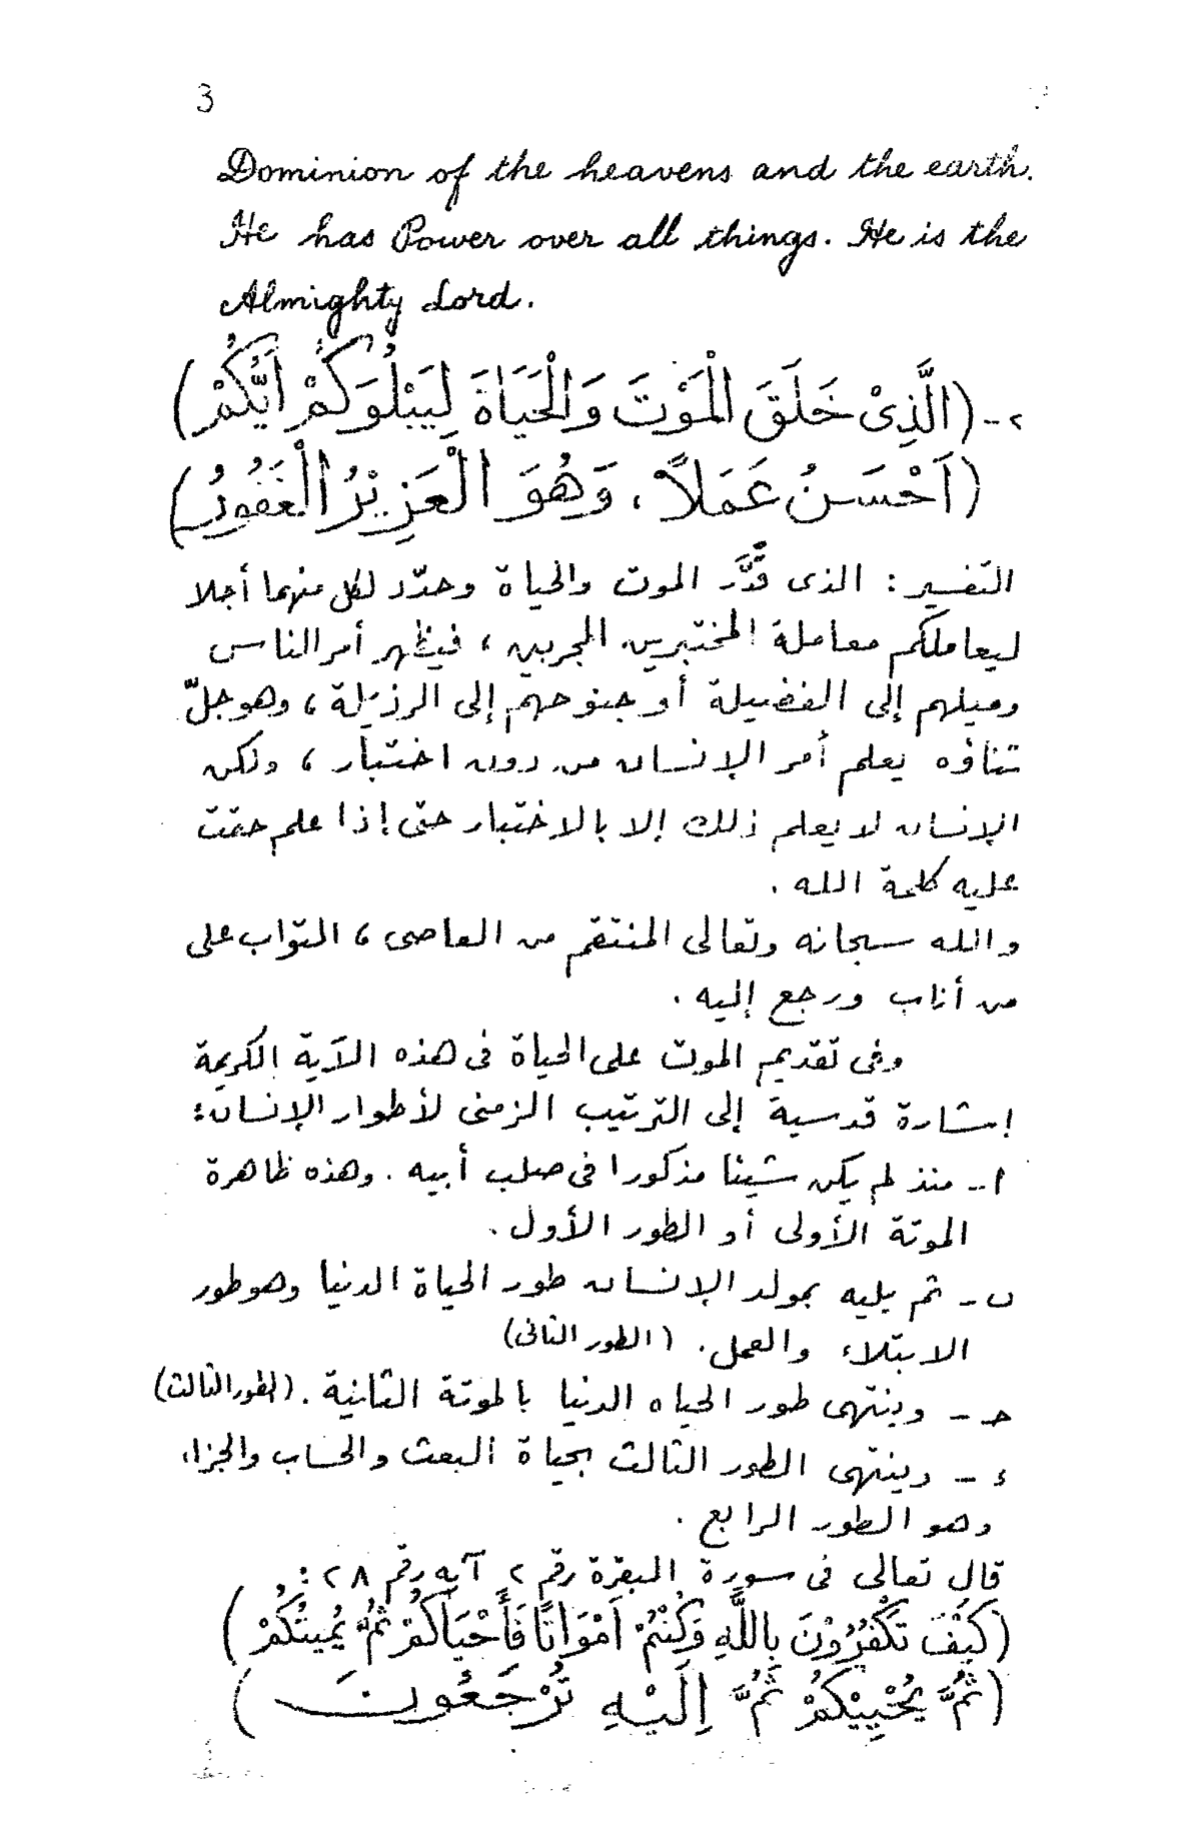 3
Dominion of the heavens and the earth.
He has Power over all things. He is the
Almighty Lord.
٢-- (الَّذِىْ خَلَقَ الْمَوْتَ وَالْحَيَاةَ لِيَبْلُوَكُمْ اَيُّكُمْ)
(اَحْسَنُ عَمَلاً، وَهُوَ الْعَزِيْزُ الْغَفُورُ)
التفسير : الذى قدَّر الموت والحياة وحدّد لكل منهما أجلا
ليعاملكم معاملة المختبرين المجربين ، فيظهر أمر الناس
وميلهم إلى الفضيلة أو جنوحهم إلى الرذيلة ، وهو جلّ
ثناؤه يعلم أمر الإنسان من دون اختبار ، ولكن
الإنسان لا يعلم ذلك إلا بالاختبار حتى إذا علم حقت
عليه كلمة الله .
والله سبحانه وتعالى المنتقم من العاصى ، التواب على
من أناب ورجع إليه .
وفى تقديم الموت على الحياة فى هذه الآية الكريمة
إشارة قدسية إلى الترتيب الزمنى لأطوار الإنسان :
ا -- منذ لم يكن شيئا مذكورا فى صلب أبيه . وهذه ظاهرة
الموتة الأولى أو الطور الأول .
ب -- ثم يليه بمولد الإنسان طور الحياة الدنيا وهو طور
الابتلاء والعمل . (الطور الثانى)
حـ -- وينتهى طور الحياه الدنيا بالموتة الثانية . (الطور الثالث)
ء -- وينتهى الطور الثالث بحياة البعث والحساب والجزاء
وهو الطور الرابع .
قال تعالى فى سورة البقرة رقم ٢ آيه رقم ٢٨ :
(كَيْفَ تَكْفُرُوْنَ بِاللَّهِ وَكُنْتُمْ اَمْوَاتًا فَأَحْيَاكُمْ ثُمَّ يُمِيتُكُمْ)
(ثُمَّ يُحْيِيْكُمْ ثُمَّ اِلَيْهِ تُرْجَعُونَ)